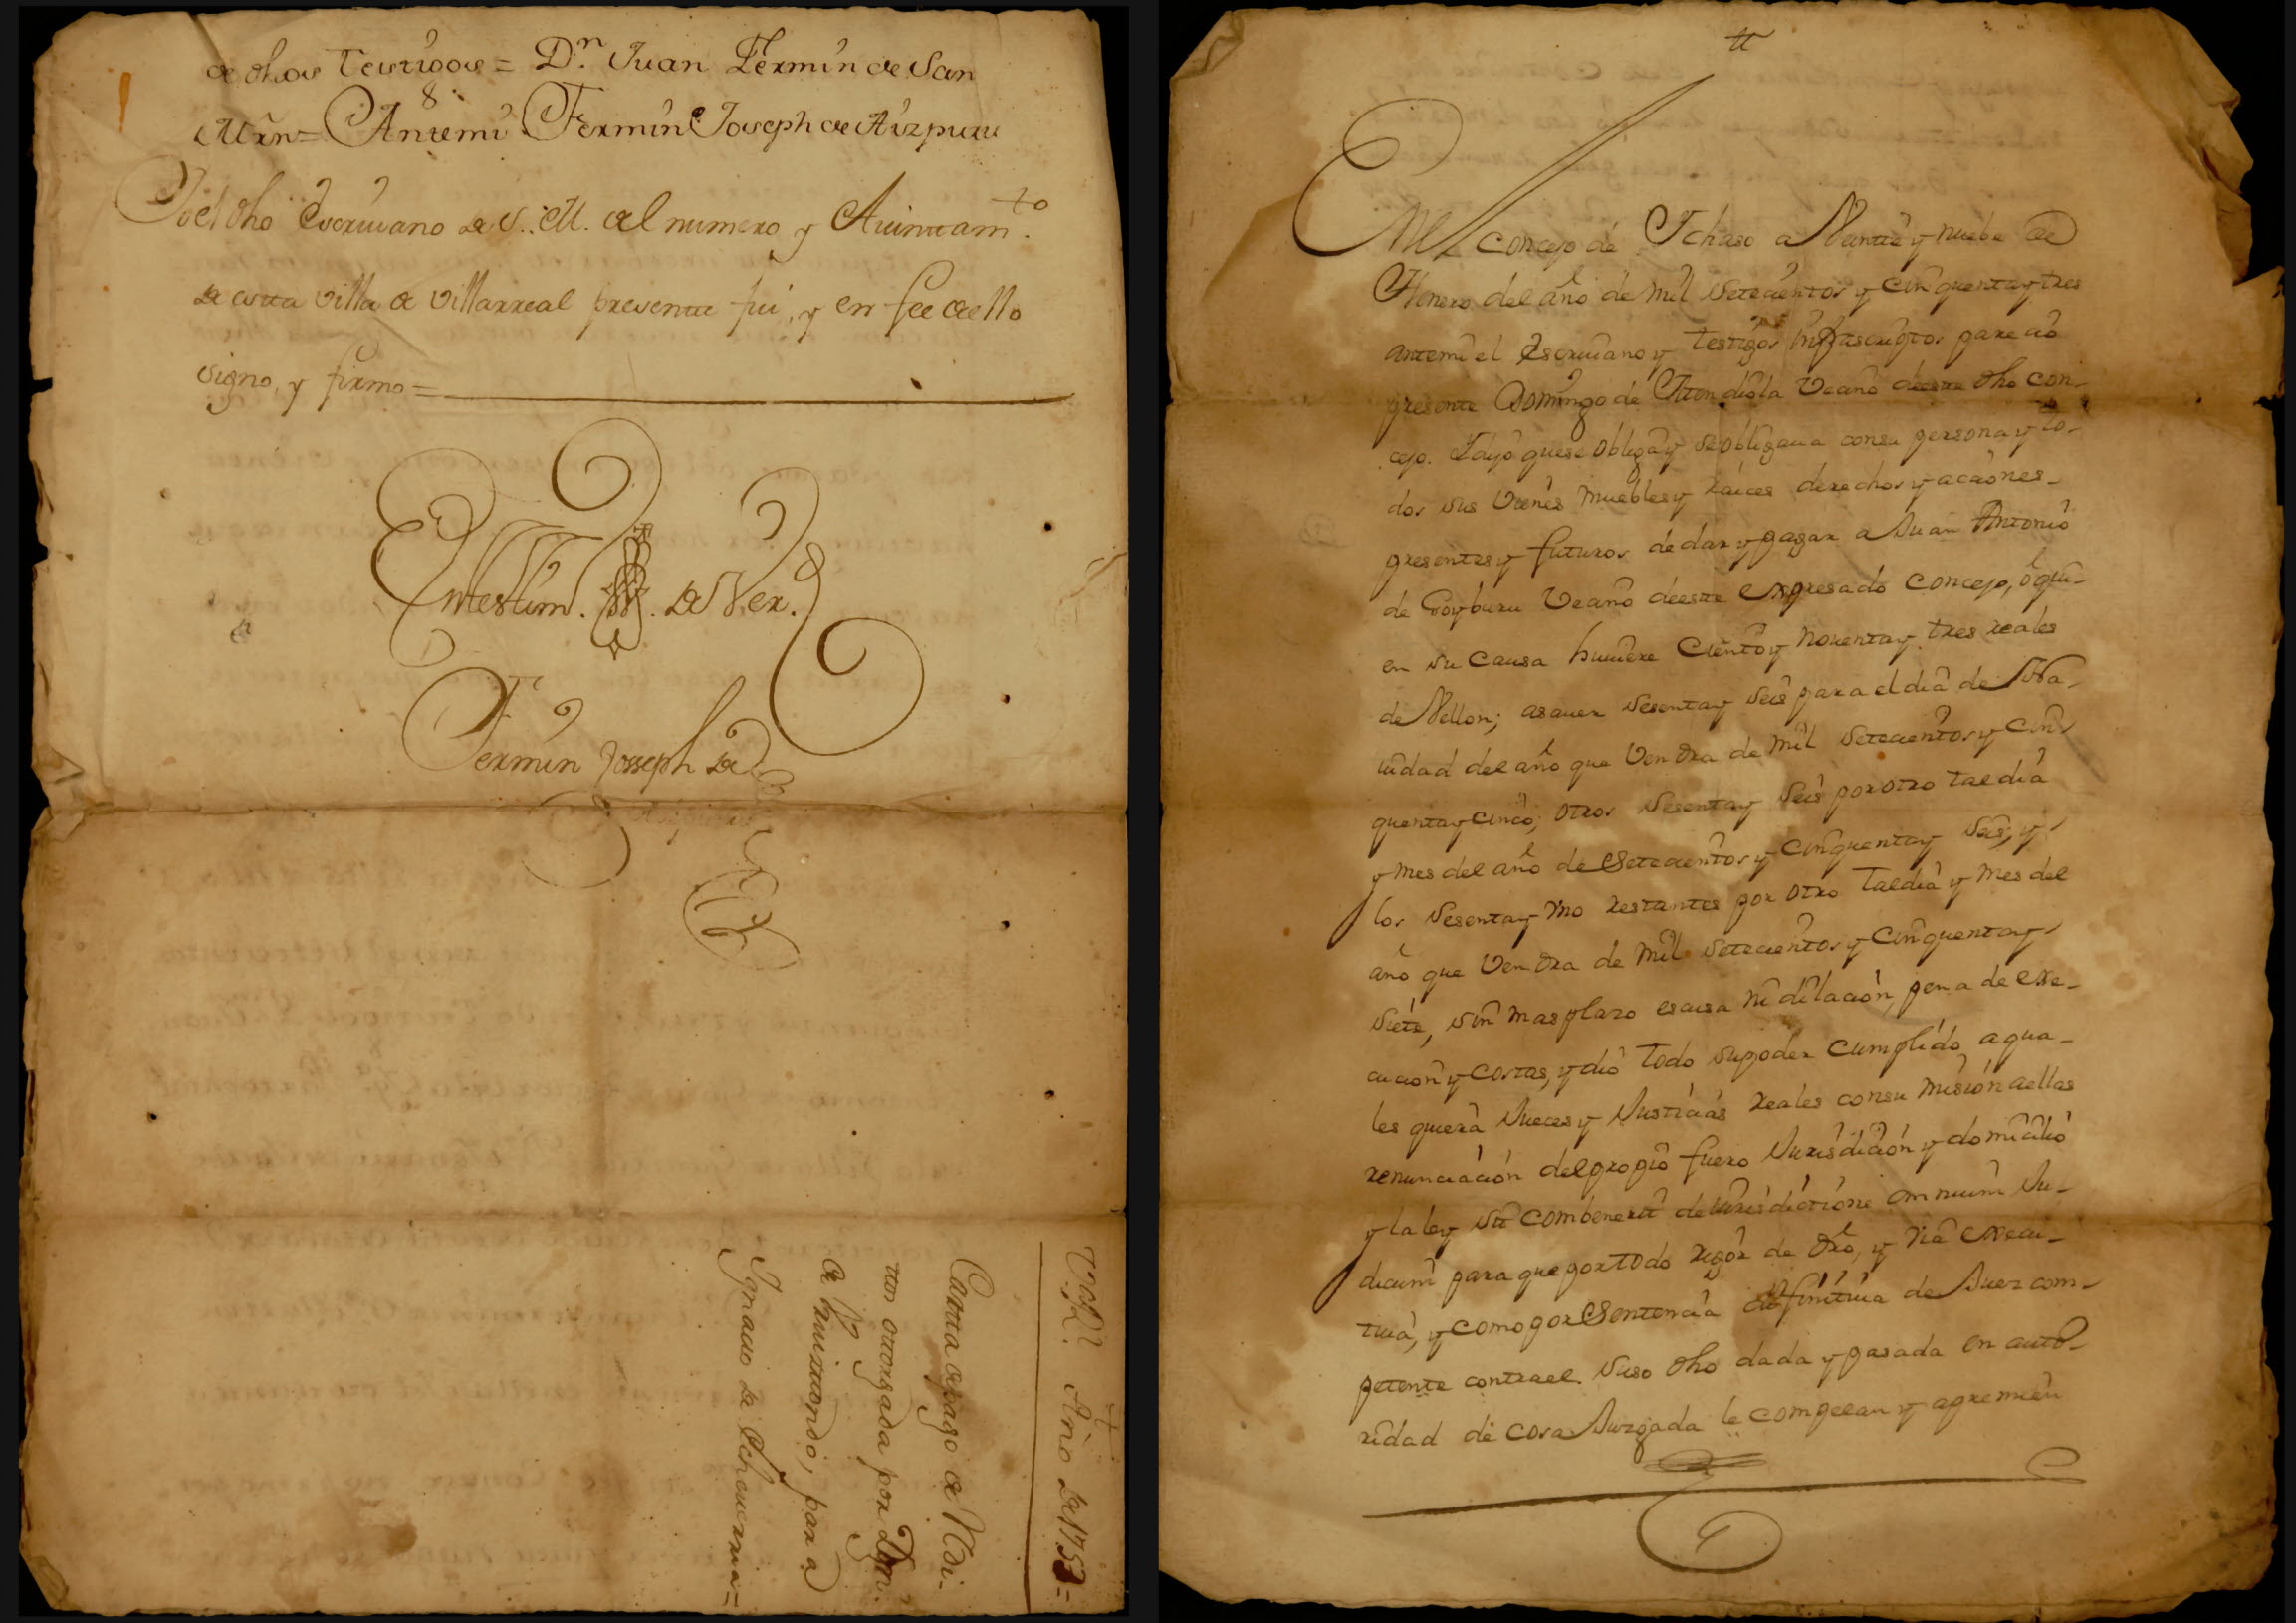 de dhos testigos = Dn. Juan Fermin de San
Mrn = Antemi Fermin Joseph de Aizpuru
Yo el dho Escriuano de S. M. del numero y Aiuntamto.
de esta villa de Villarreal presente fui, y en fee de ello
signo, y firmo =
En testim. de Ver.
Fermin Joseph de
V.R. Año de 1753 =
Carta de pago de 
otorgada por Dgo.
de 
para
Ignacio de Echeverria =
En el Concejo de Ichaso a Veinte y nuebe de
Henero del año de mil Setecientos y cinquenta y tres
antemi el Escriuano y testigos infrascriptos parecio
presente Domingo de Iton diola Vecino de este dho con-
cejo. I dijo que se obliga y se obligaua con su persona y to-
dos sus vienes muebles y raices derechos y acciones
presentes y futuros de dar y pagar a Juan Antonio
de Goyburu Vecino de este expresado Concejo, o quien
en su causa huuiere Ciento y Nouenta y tres reales
de Vellon; asauer Sesenta y Seis para el dia de Na-
uidad del año que Vendra de mil Setecientos y cin-
quenta y cinco; otros Sesenta y Seis por otro tal dia
y mes del año de Setecientos y cinquenta y Seis; y
los Sesenta y Vno restantes por otro tal dia y mes del
año que Vendra de mil Setecientos y cinquenta y
Siete, sin mas plazo escusa ni dilacion, pena de exe-
cucion y costas, y dio todo su poder cumplido a qua-
les quiera Jueces y Justicias reales con su misión a ellas
renunciacion del propio fuero Jurisdicion y domicilio
y la ley sit combenerit de Jurisdictione omnium Ju-
dicum para que por todo rigor de dro, y via execu-
tiua, y como por Sentencia difinitiua de Juez com-
petente contra el Suso dho dada y pasada en auto-
ridad de cosa Juzgada le compelan y apremien